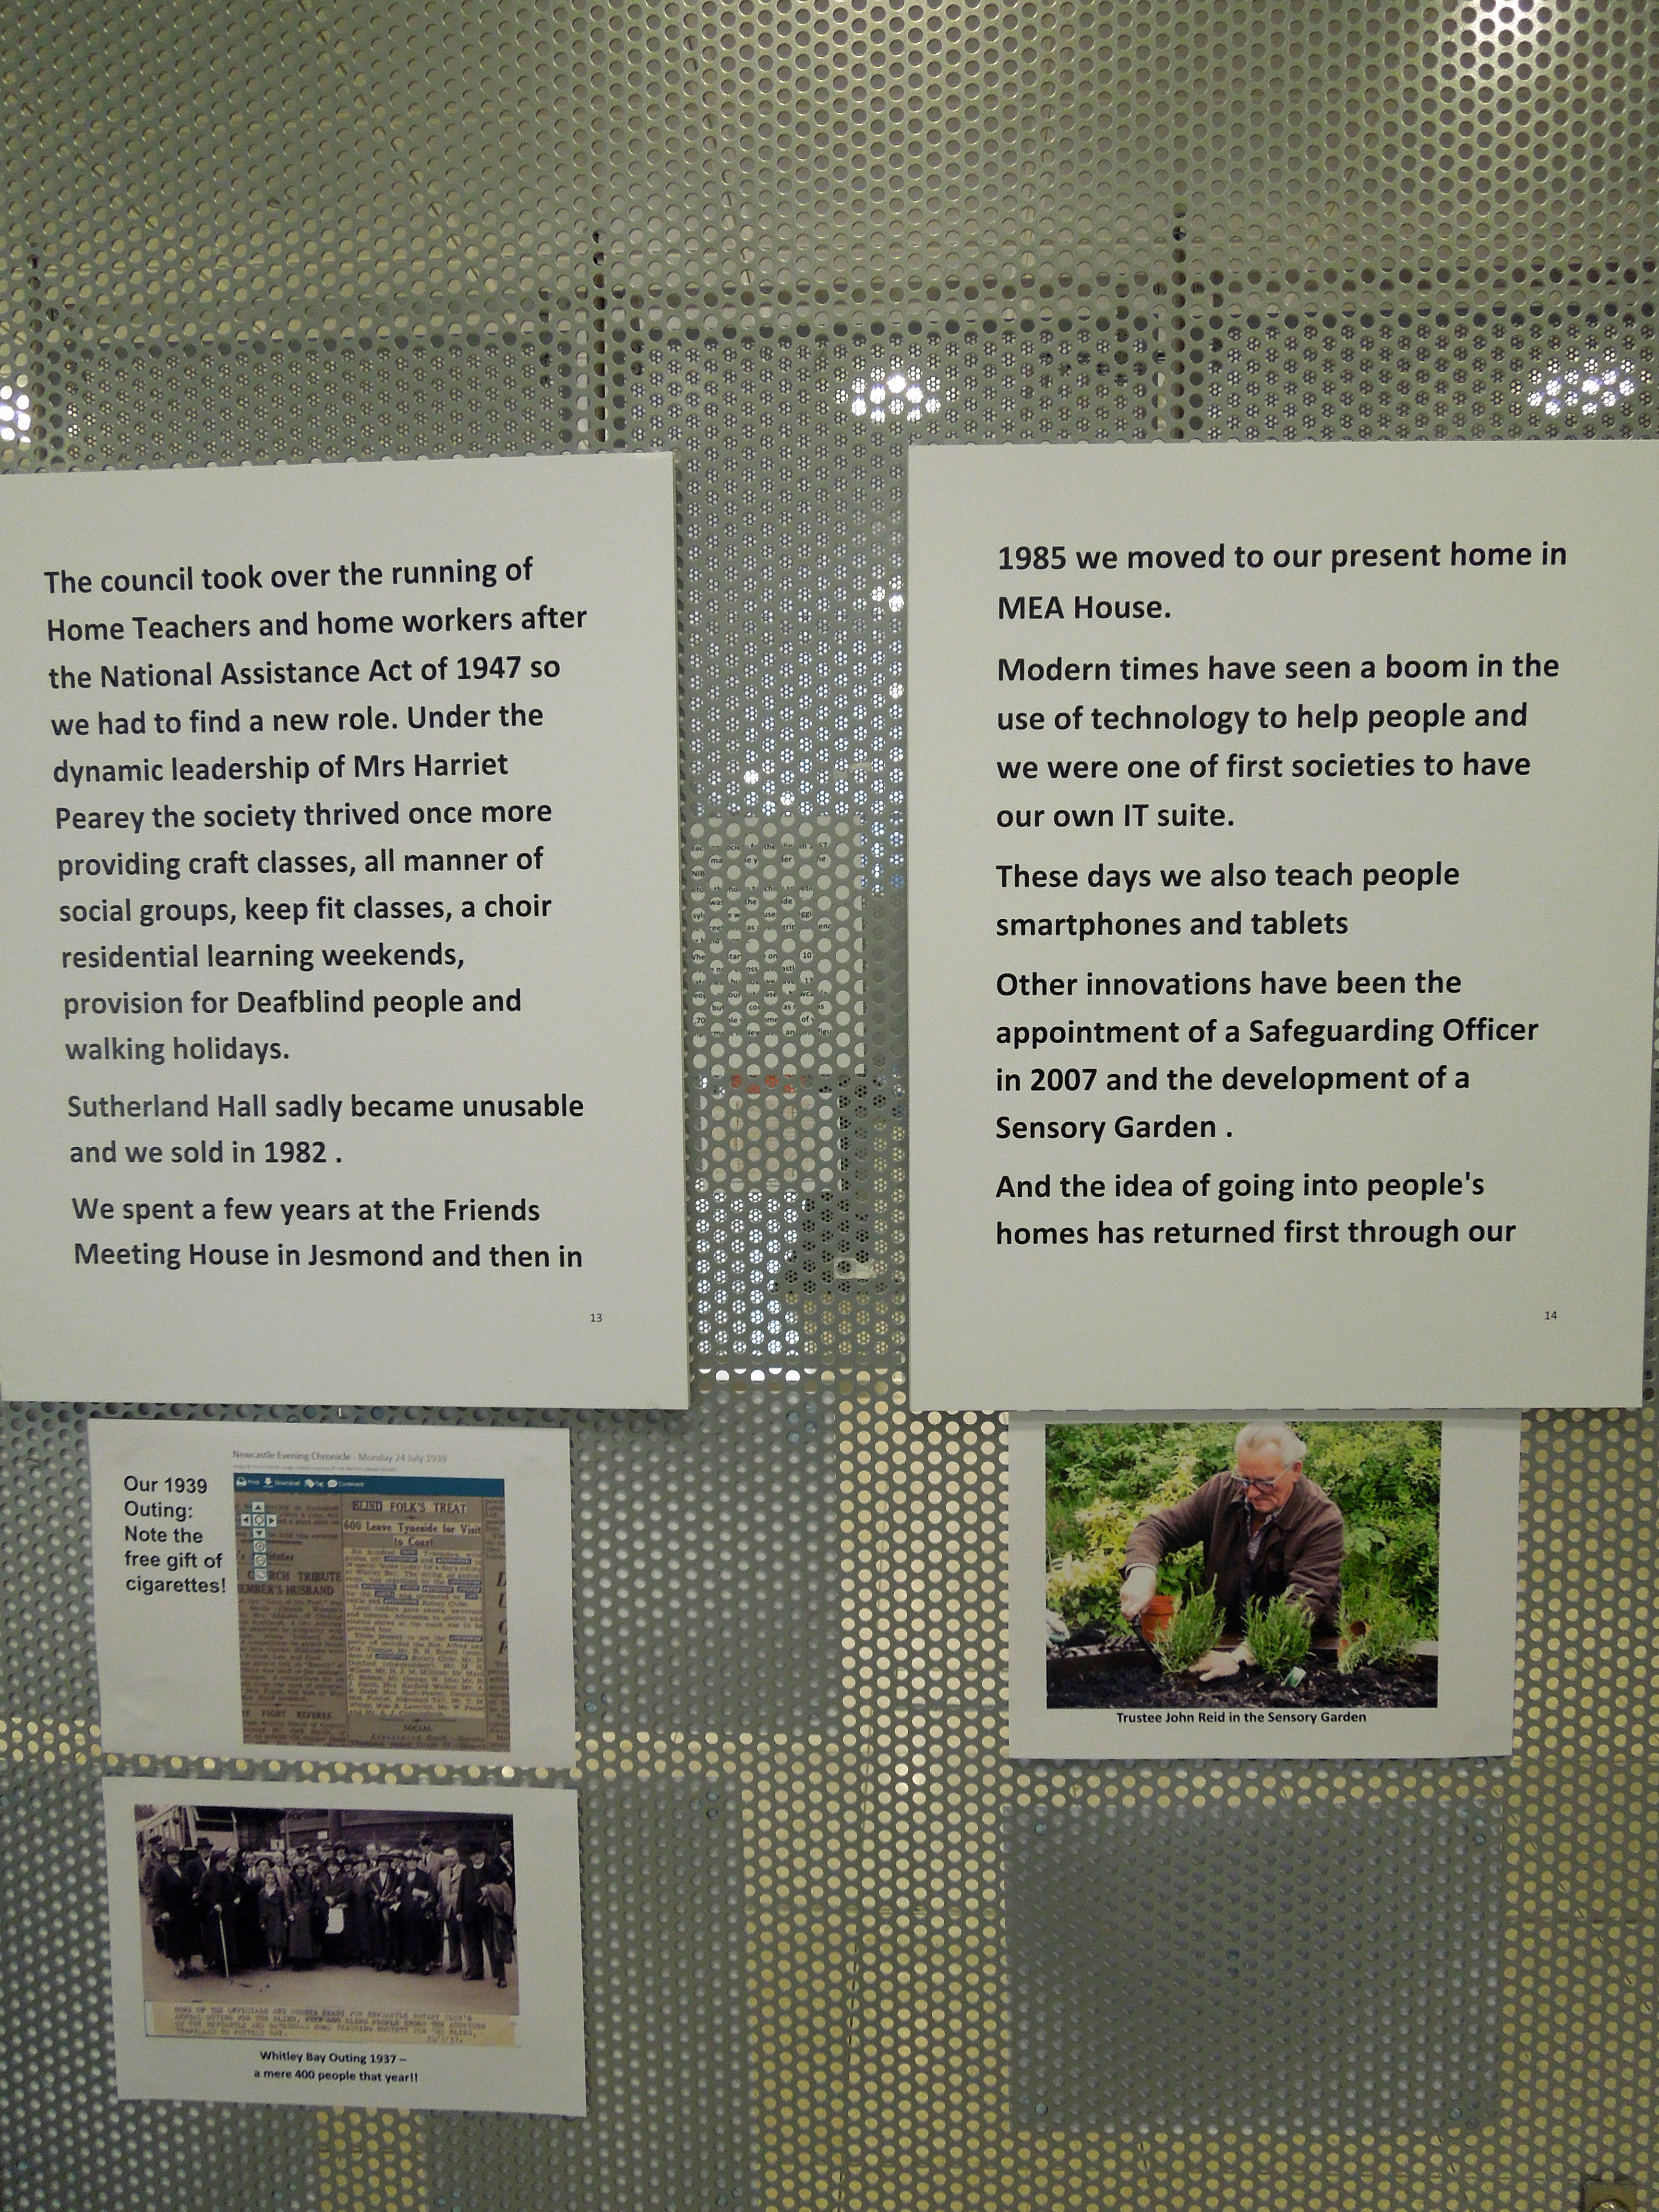 The council took over the running of
Home Teachers and home workers after
the National Assistance Act of 1947 so
we had to find a new role. Under the
dynamic leadership of Mrs Harriet
Pearey the society thrived once more
providing craft classes, all manner of
social groups, keep fit classes, a choir
residential learning weekends,
provision for Deafblind people and
walking holidays.
Sutherland Hall sadly became unusable
and we sold in 1982 .
We spent a few years at the Friends
Meeting House in Jesmond and then in
13
1985 we moved to our present home in
MEA House.
Modern times have seen a boom in the
use of technology to help people and
we were one of first societies to have
our own IT suite.
These days we also teach people
smartphones and tablets
Other innovations have been the
appointment of a Safeguarding Officer
in 2007 and the development of a
Sensory Garden .
And the idea of going into people's
homes has returned first through our
14
Newcastle Evening Chronicle - Monday 24 July 1939
Our 1939
Outing:
Note the
free gift of
cigarettes!
Print Download Tag Comment
BLIND FOLK'S TREAT
600 Leave Tyneside for Visit
to Coast
CHURCH TRIBUTE
HUSBAND
FIGHT REFEREE
SOCIAL
Trustee John Reid in the Sensory Garden
SOME OF THE OFFICIALS AND READY FOR NEWCASTLE ROTARY CLUB'S
ANNUAL OUTING FOR THE BLIND, WHEN 400 BLIND PEOPLE UNDER THE AUSPICES
OF THE NEWCASTLE AND GATESHEAD HOME TEACHING SOCIETY FOR THE BLIND,
TRAVELLED TO WHITLEY BAY.
Whitley Bay Outing 1937 –
a mere 400 people that year!!